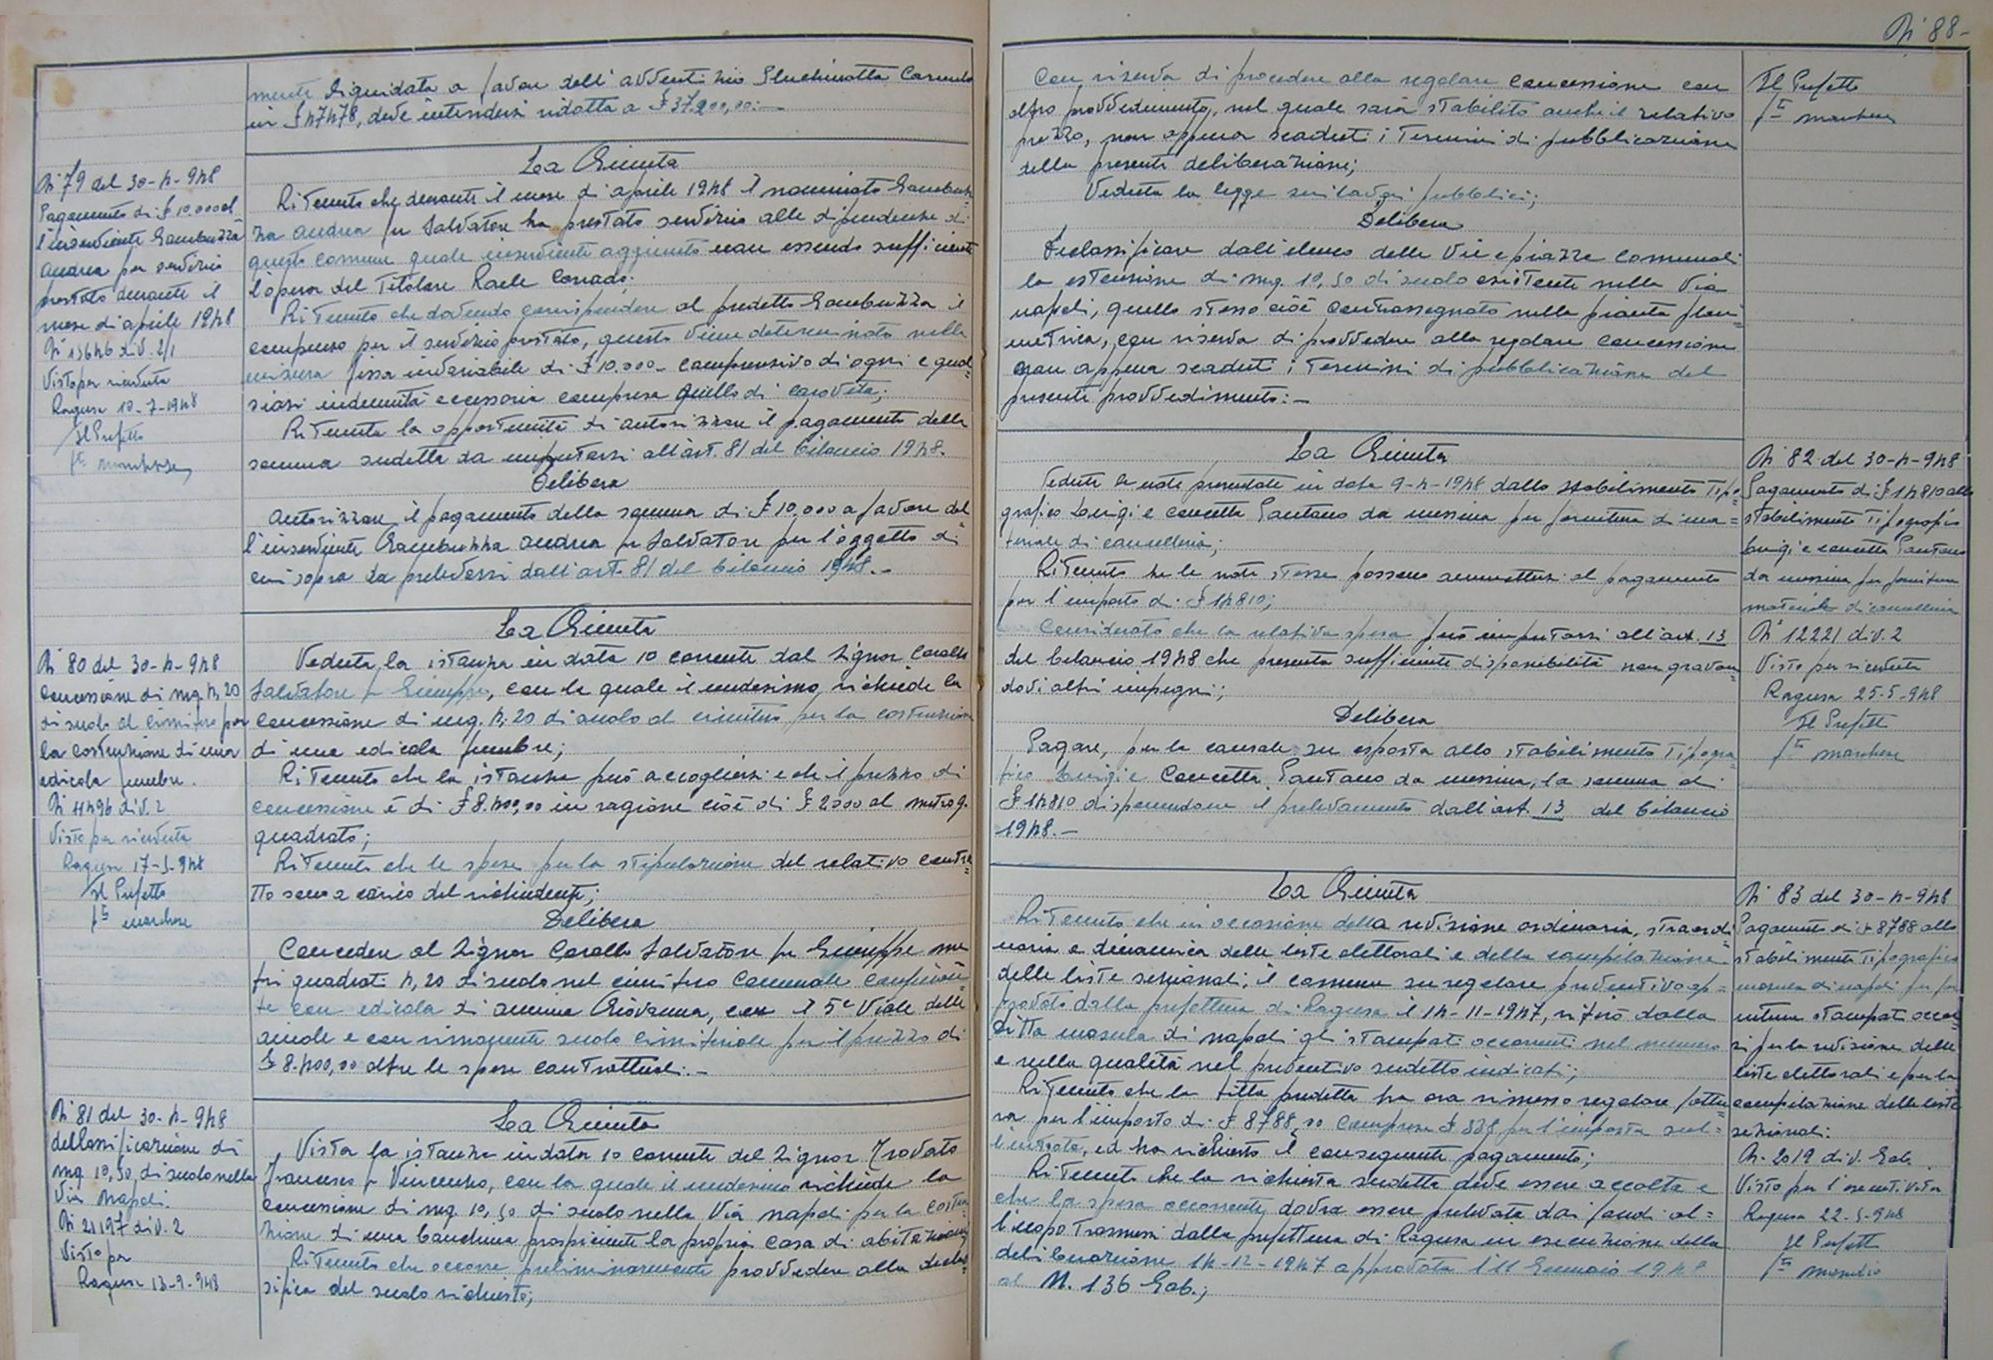 N° 88-
mente liquidata a favore dell'avventizio Pluchinotta Carmelo
in £ 47478, deve intendersi ridotta a £ 37.900,00.-
N° 79 del 30-4-948
Pagamento di £ 10.000 al
l'inserviente Gambuzza
Andrea per servizio
prestato durante il
mese di aprile 1948
N° 13646 div. 2/1
Visto per ricevuta
Ragusa 10-7-1948
Il Prefetto
La Giunta
Ritenuto che durante il mese di aprile 1948 il nominato Gambuz=
za Andrea fu Salvatore ha prestato servizio alle dipendenze di
questo comune quale inserviente aggiunto non essendo sufficiente
l'opera del Titolare Raele Corrado;
Ritenuto che dovendo corrispondere al predetto Gambuzza il
compenso per il servizio prestato, questo viene determinato nella
misura fissa invariabile di £ 10.000 - comprensivo di ogni e qual=
siasi indennità accessoria compresa quella di carovita;
Ritenuta la opportunità di autorizzare il pagamento della
somma sudetta da imputarsi all'art. 81 del bilancio 1948.
Delibera
Autorizzare il pagamento della somma di £ 10.000 a favore del=
l'inserviente Gambuzza Andrea fu Salvatore per l'oggetto di
cui sopra da prelevarsi dall'art. 81 del bilancio 1948.-
N° 80 del 30-4-948
Concessione di mq. 4,20
di suolo al cimitero per
la costruzione di una
edicola funebre.
N° 11496 div. 2
Visto per ricevuta
Ragusa 17-5-948
Il Prefetto
fto Marchese
La Giunta
Veduta la istanza in data 10 corrente dal Signor Corallo
Salvatore fu Giuseppe, con la quale il medesimo richiede la
concessione di mq. 4,20 di suolo al cimitero per la costruzione
di una edicola funebre;
Ritenuto che la istanza può accogliersi e che il prezzo di
concessione è di £ 8.400,00 in ragione cioè di £ 2000 al metro q.
quadrato;
Ritenuto che le spese per la stipulazione del relativo contra=
tto sono a carico del richiedente;
Delibera
Concedere al Signor Corallo Salvatore fu Giuseppe me
tri quadrati 4,20 di suolo nel cimitero Comunale confinan=
te con edicola di Giovanna, con il 5° Viale delle
aiuole e con rimanente suolo cimiteriale per il prezzo di
£ 8.400,00 oltre le spese contrattuali.-
N° 81 del 30-4-948
declassificazione di
mq. 10,50 di suolo nella
Via Napoli.
N° 21197 div. 2
Visto per
Ragusa 13-9-948
La Giunta
Vista la istanza in data 10 corrente del Signor Trovato
Francesco fu Vincenzo, con la quale il medesimo richiede la
concessione di mq. 10,50 di suolo nella Via Napoli per la costru
zione di una banchina prospiciente la propria casa di abitazione;
Ritenuto che occorre preliminarmente provvedere alla declas=
sifica del suolo richiesto;
Con riserva di procedere alla regolare concessione con
altro provvedimento, nel quale sarà stabilito anche il relativo
prezzo, non appena scaduti i termini di pubblicazione
della presente deliberazione;
Veduta la legge sui lavori pubblici;
Delibera
Declassificare dall'elenco delle Vie e piazze comunali
la estensione di mq. 10,50 di suolo esistente nella Via
Napoli, quello stesso cioè contrassegnato nella pianta plani=
metrica, con riserva di provvedere alla regolare concessione
non appena scaduti i termini di pubblicazione del
presente provvedimento:-
Il Prefetto
fto Marchese
La Giunta
Vedute le note presentate in data 9-4-1948 dallo stabilimento Tipo=
grafico Luigi e Concetta Pantano da Messina per fornitura di ma=
teriale di cancelleria;
Ritenuto che le note stesse possono ammettersi al pagamento
per l'importo di £ 14810;
Considerato che la relativa spesa può imputarsi all'art. 13
del bilancio 1948 che presenta sufficiente disponibilità non gravan=
dovi altri impegni;
Delibera
Pagare, per la causale su esposta allo stabilimento Tipogra=
fico Luigi e Concetta Pantano da Messina, la somma di
£ 14810 disponendone il prelevamento dall'art. 13 del bilancio
1948.-
N° 82 del 30-4-948
Pagamento di £ 14810 allo
stabilimento Tipografico
Luigi e Concetta Pantano
da Messina per fornitura
materiale di cancelleria
N° 12221 div. 2
Visto per ricevuta
Ragusa 25-5-948
Il Prefetto
fto Marchese
La Giunta
Ritenuto che in occasione della revisione ordinaria, straordi
naria e dinamica delle liste elettorali e della compilazione
delle liste sezionali, il comune su regolare preventivo ap=
provato dalla prefettura di Ragusa il 14-11-1947, ritirò dalla
Ditta Mosela di Napoli gli stampati occorrenti nel numero
e nella qualità nel preventivo sudetto indicati;
Ritenuto che la Ditta predetta ha ora rimesso regolare fattu
ra per l'importo di £ 8788,00 comprese £ 338 per l'imposta sul=
l'entrata, ed ha richiesto il conseguente pagamento;
Ritenuto che la richiesta sudetta deve essere accolta e
che la spesa occorrente dovrà essere prelevata dai fondi al=
l'uopo trasmessi dalla prefettura di Ragusa in esecuzione della
deliberazione 14-12-1947 approvata l'11 Gennaio 1948
al N. 136 Gab.;
N° 83 del 30-4-948
Pagamento di £ 8788 allo
stabilimento Tipografico
Mosela di Napoli per for
nitura stampati occor
si per la revisione delle
liste elettorali e per la
compilazione delle liste
sezionali:
N. 2019 div. Gab.
Visto per l'esecutività
Ragusa 22-5-948
Il Prefetto